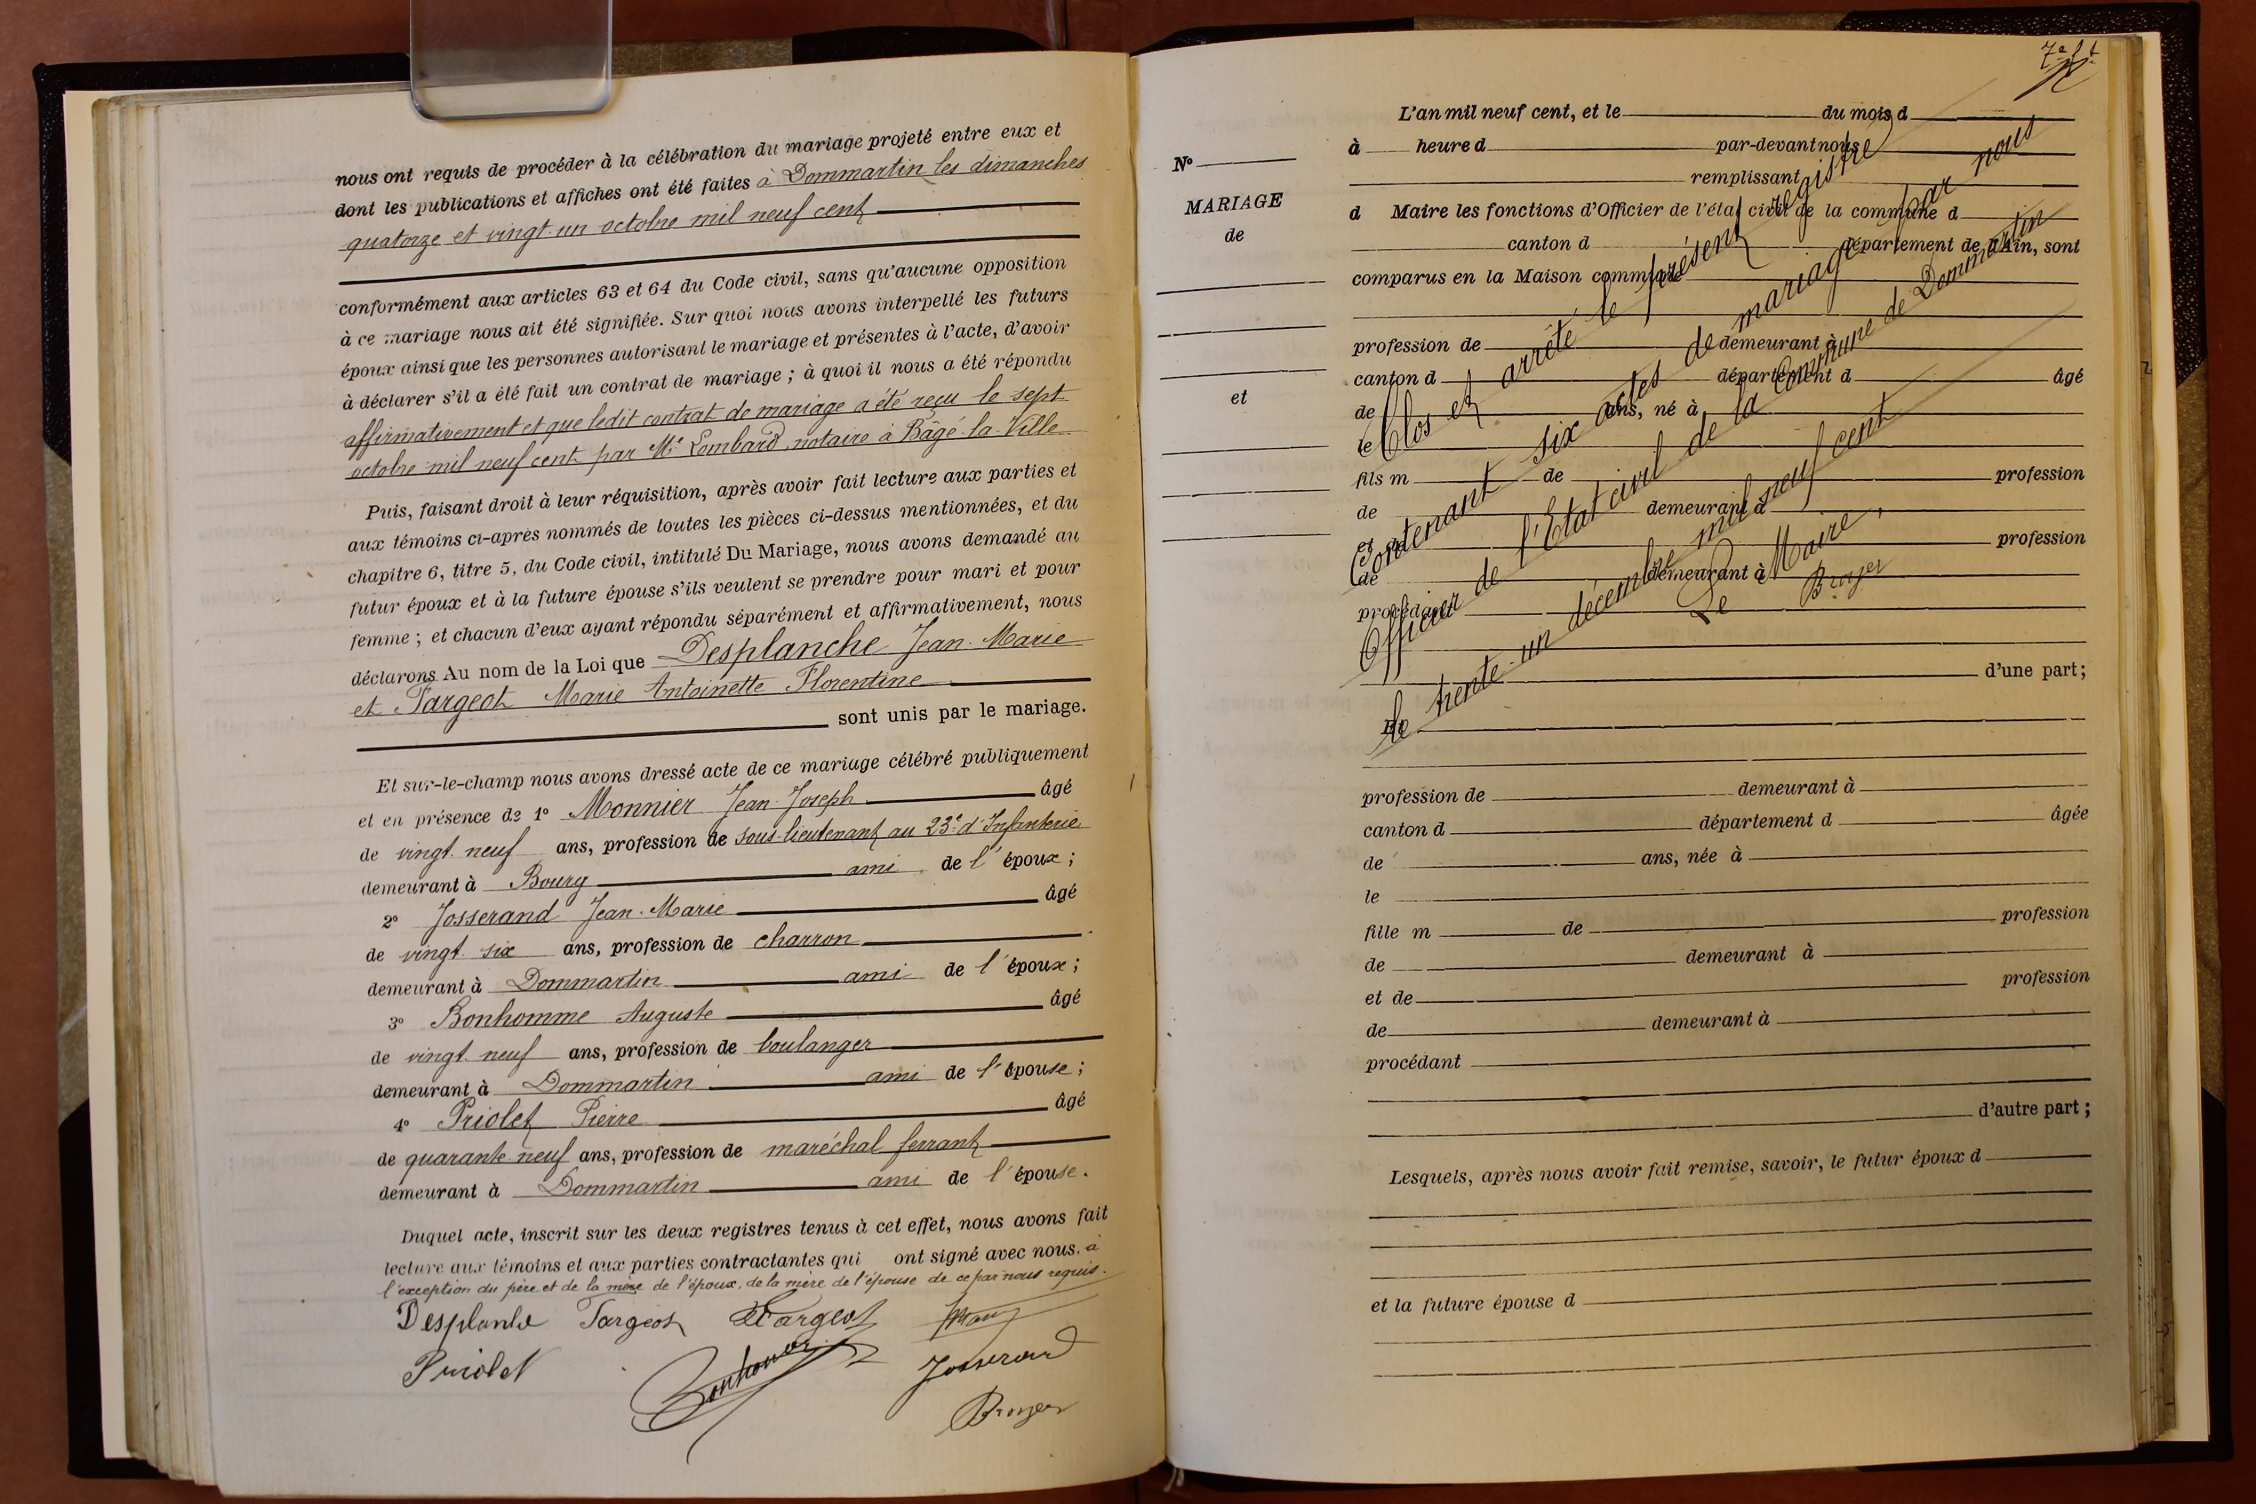 nous ont requis de procéder à la célébration du mariage projeté entre eux et
dont les publications et affiches ont été faites à Dommartin les dimanches
quatorze et vingt-un octobre mil neuf cent
conformément aux articles 63 et 64 du Code civil, sans qu'aucune opposition
à ce mariage nous ait été signifiée. Sur quoi nous avons interpellé les futurs
époux ainsi que les personnes autorisant le mariage et présentes à l'acte, d'avoir
à déclarer s'il a été fait un contrat de mariage ; à quoi il nous a été répondu
affirmativement et que ledit contrat de mariage a été reçu le sept
octobre mil neuf cent par Me Lombard, notaire à Bâgé-la-Ville
Puis, faisant droit à leur réquisition, après avoir fait lecture aux parties et
aux témoins ci-après nommés de toutes les pièces ci-dessus mentionnées, et du
chapitre 6, titre 5, du Code civil, intitulé Du Mariage, nous avons demandé au
futur époux et à la future épouse s'ils veulent se prendre pour mari et pour
femme ; et chacun d'eux ayant répondu séparément et affirmativement, nous
déclarons Au nom de la Loi que Desplanche Jean-Marie
et Fargeot Marie Antoinette Florentine
sont unis par le mariage.
Et sur-le-champ nous avons dressé acte de ce mariage célébré publiquement
et en présence de 1° Monnier Jean-Joseph âgé
de vingt-neuf ans, profession de sous-lieutenant au 23e d'Infanterie
demeurant à Bourg ami de l'époux ;
2° Josserand Jean-Marie âgé
de vingt-six ans, profession de charron
demeurant à Dommartin ami de l'époux ;
3° Bonhomme Auguste âgé
de vingt-neuf ans, profession de boulanger
demeurant à Dommartin ami de l'épouse ;
4° Priolet Pierre âgé
de quarante-neuf ans, profession de maréchal ferrant
demeurant à Dommartin ami de l'épouse.
Duquel acte, inscrit sur les deux registres tenus à cet effet, nous avons fait
lecture aux témoins et aux parties contractantes qui ont signé avec nous. à
l'exception du père et de la mère de l'époux, de la mère de l'épouse de ce par nous requis.
Desplanche Fargeot Fargeot
Priolet Bonhomme Josserand
Broyer
L'an mil neuf cent, et le du mois d
N° à heure d par-devant nous
remplissant
MARIAGE
de
et
d Maire les fonctions d'Officier de l'état civil de la commune d
canton d département de l'Ain, sont
comparus en la Maison commune
profession de demeurant à
canton d département d âgé
de ans, né à
le
fils m de profession
de demeurant à
et de profession
de demeurant à
procédant
d'une part ;
Et
profession de demeurant à
canton d département d âgée
de ans, née à
le
fille m de profession
de demeurant à
et de profession
de demeurant à
procédant
d'autre part ;
Lesquels, après nous avoir fait remise, savoir, le futur époux d
et la future épouse d
Clos et arrêté le présent registre
Contenant six actes de mariage par nous
Officier de l'Etat civil de la Commune de Dommartin
le trente-un décembre mil neuf cent
Le Maire,
Broyer